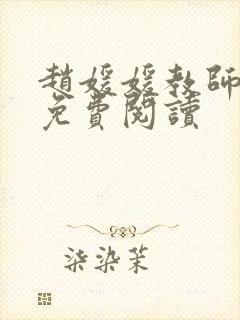 趙媛媛教師
免費閱讀
柒染茉